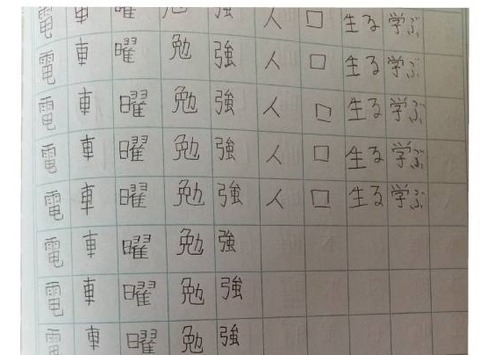 電 車 曜 勉 強 人 口 生る 学ぶ
電 車 曜 勉 強 人 口 生る 学ぶ
電 車 曜 勉 強 人 口 生る 学ぶ
電 車 曜 勉 強 人 口 生る 学ぶ
電 車 曜 勉 強 人 口 生る 学ぶ
電 車 曜 勉 強
電 車 曜 勉 強
電 車 曜 勉 強